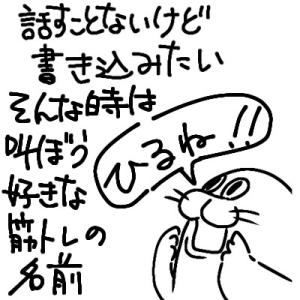 話すことないけど
書き込みたい
そんな時は
叫ぼう
好きな
筋トレの
名前
ひるね!!